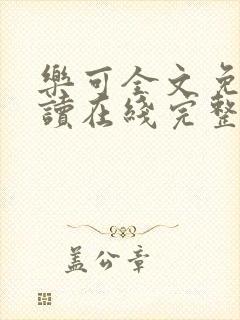 樂可全文免
讀在綫完整
蓋公章